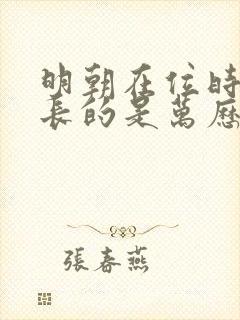 明朝在位時
長的是萬歷
張春燕